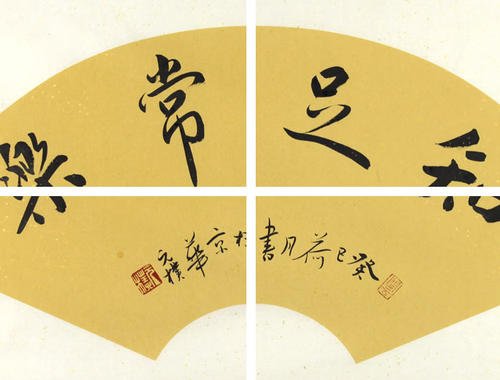 知足常樂
癸巳荷月書於京華
元樸